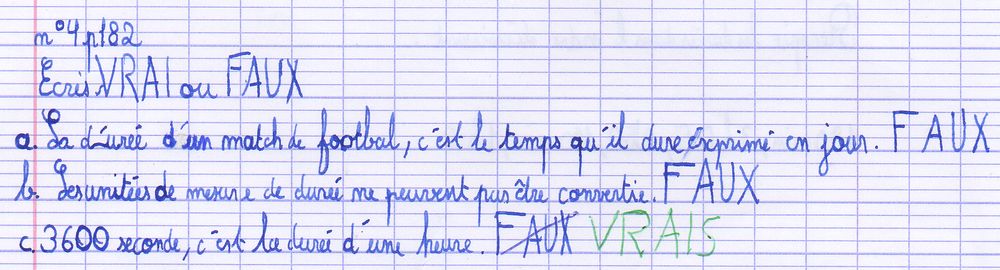 n°4 p182
Ecris VRAI ou FAUX
a. La d'urée d'un match de footbal, c'est le temps qu'il dure, exprimé en jour. FAUX
b. Les unitées de mesure de durée ne peuvent pas être convertie. FAUX
c. 3600 seconde, c'est la durée d'une heure. FAUX VRAIS